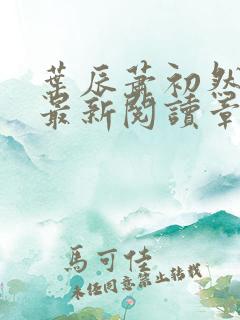 葉辰蕭初然
最新閱讀章
馬可佳
未經同意禁止轉載